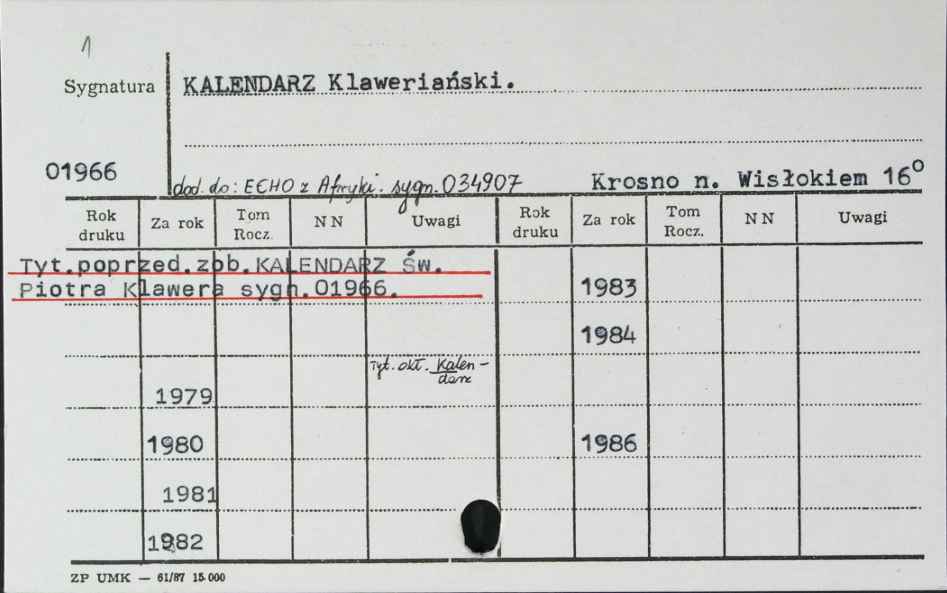 1
Sygnatura KALENDARZ Klaweriański.
01966
dod. do: ECHO z Afryki. sygn. 034907 Krosno n. Wisłokiem 16°
Rok druku Za rok Tom Rocz. NN Uwagi Rok druku Za rok Tom Rocz. NN Uwagi
Tyt.poprzed.zob.KALENDARZ Św.
Piotra Klawera sygn.01966. 1983
1984
Tyt. okł. Kalen-
darz
1979
1980 1986
1981
1982
ZP UMK — 61/87 15 000